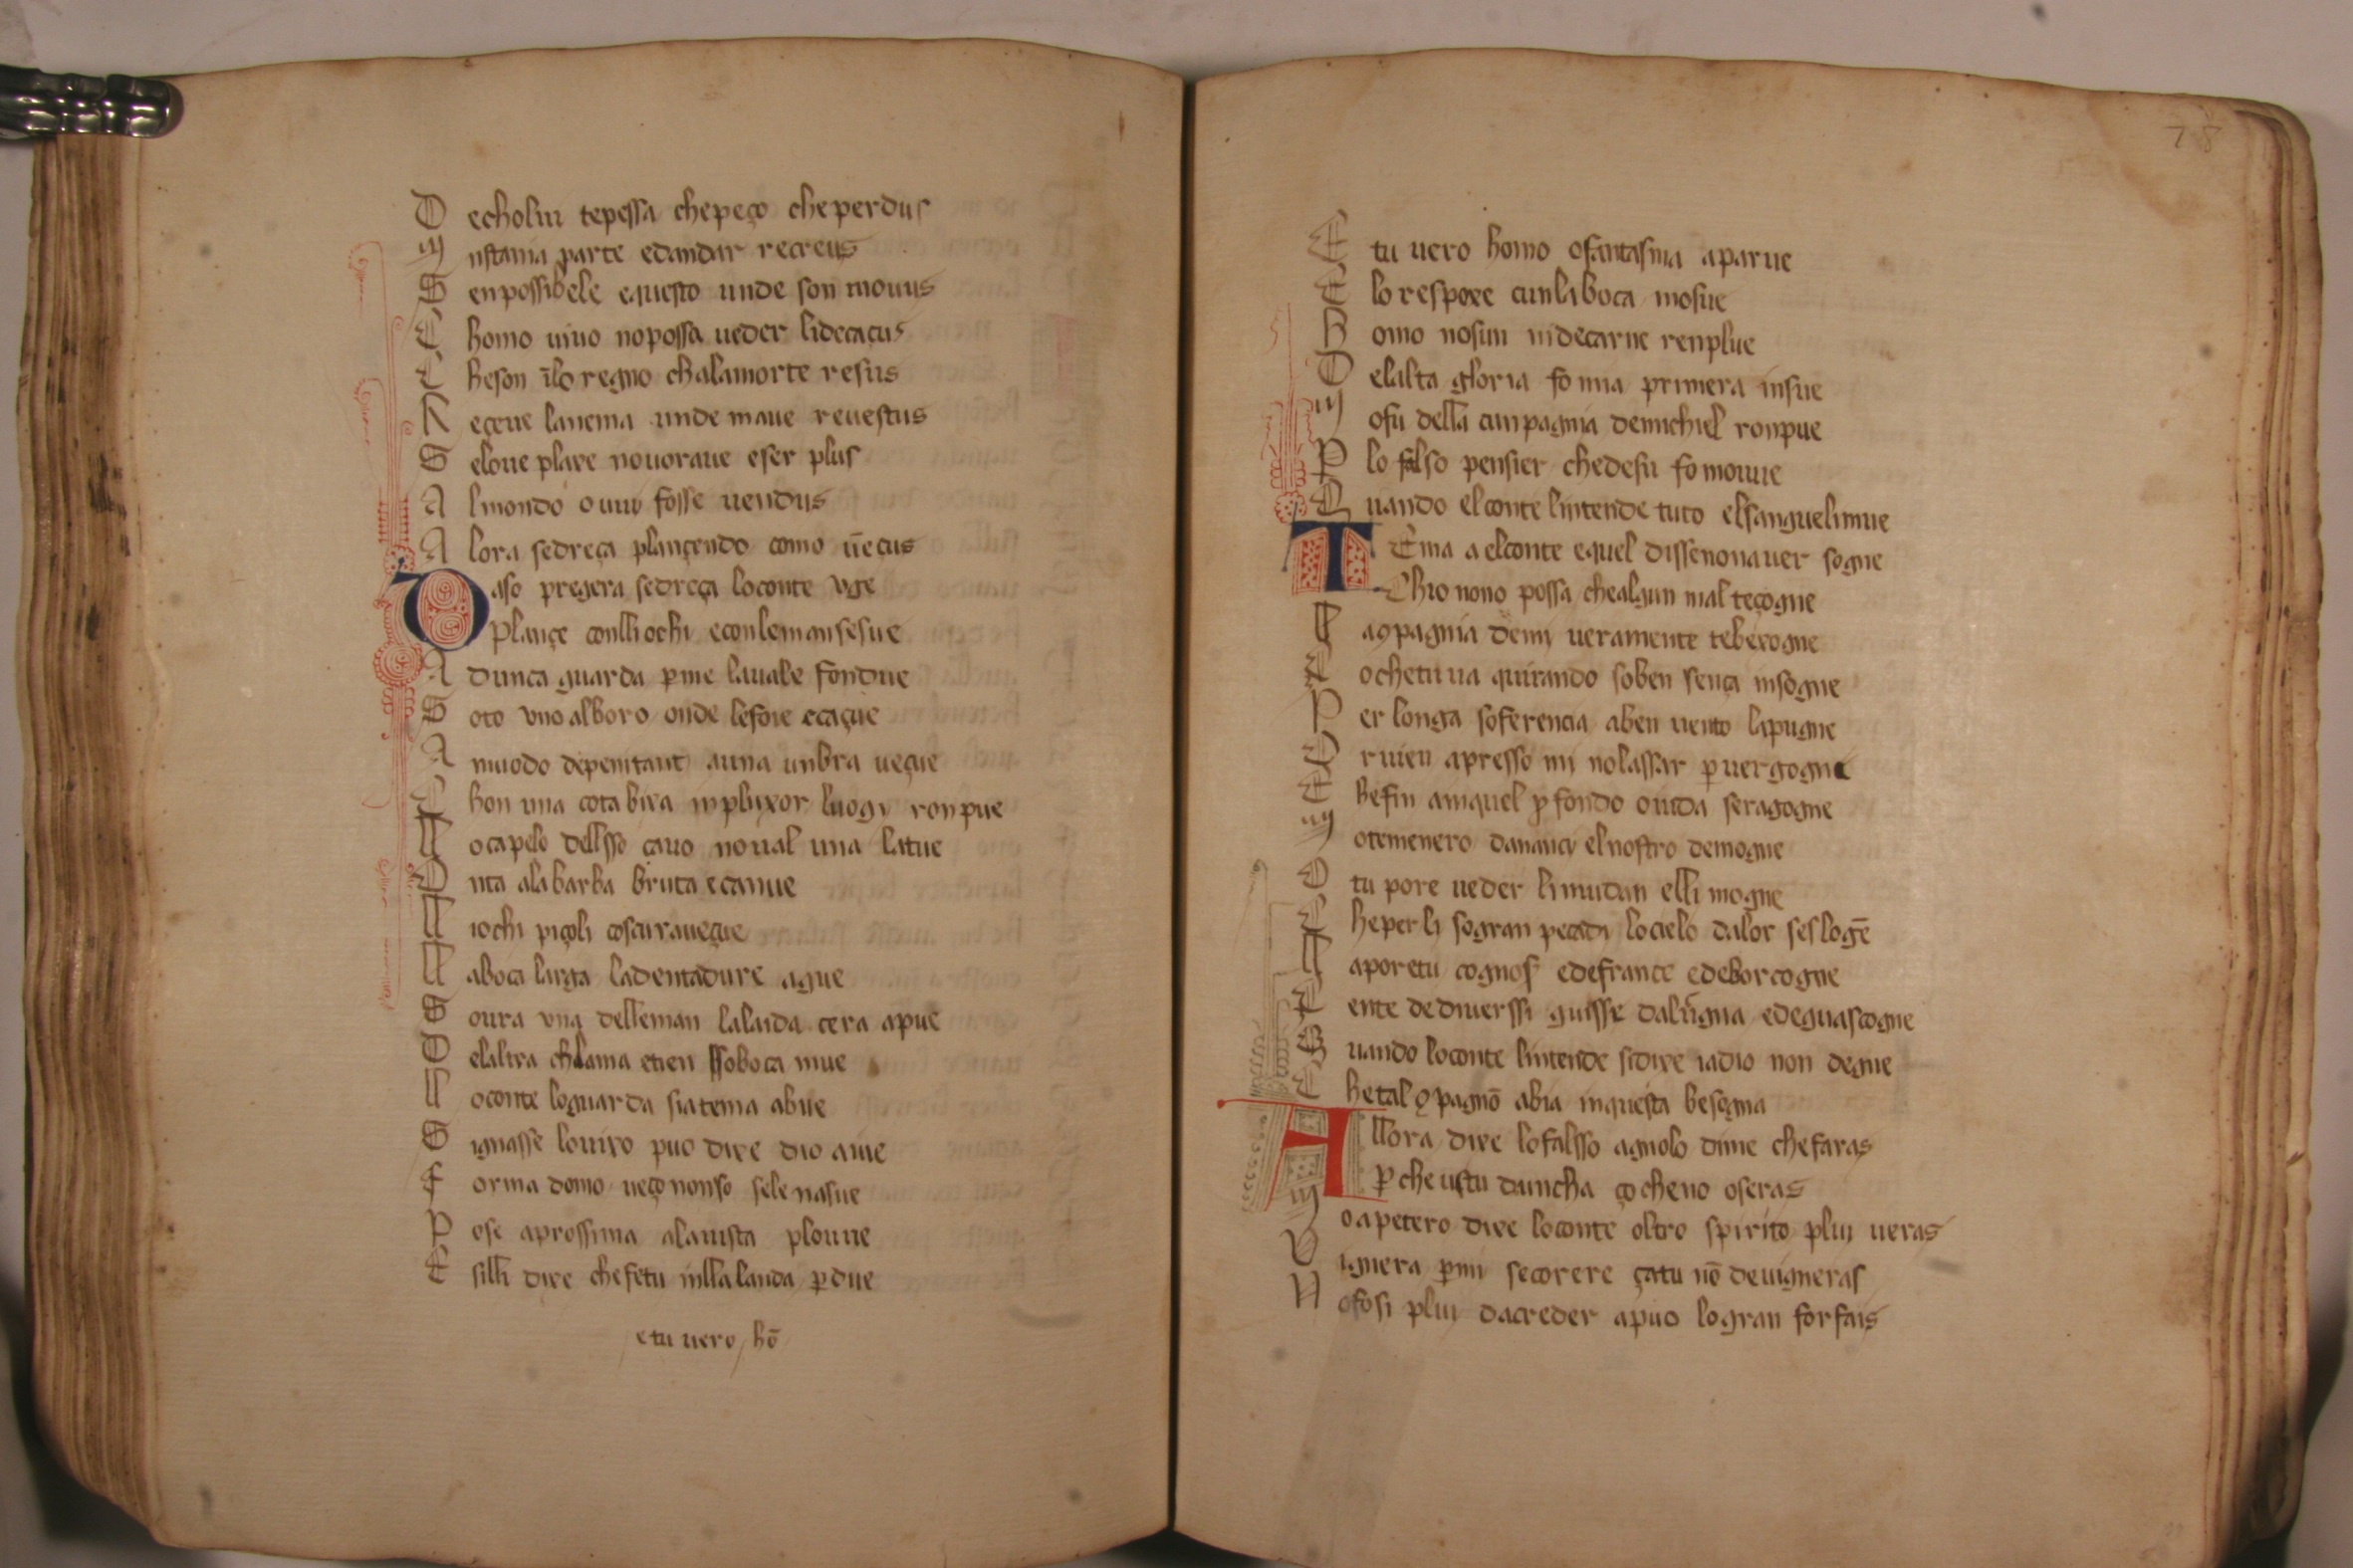 D echolui tepessa chepeço cheperdus
M nstania parte edandar recreus
S enpossibele equesto unde son mouus
C homo uiuo nopossa ueder lidecaçus
C heson īlo regno chalamorte resus
R eçeue lanema unde maue reuestus
S eloue plaxe nouoraue eser plus
A lmondo ouuy fosse uendus
A lora sedreça plançendo como ūeçus
D aso pregera sedreça loconte vge
Plançe conlli ochi econleman sesue
A dunca guarda ꝑme lauale fondue
S oto vno alboro onde lefoie ecaçue
A muodo depenitant auna unbra ueçue
C hon una cota bixa inpluxor luogy ronpue
L ocapelo dellsso cauo noual una latue
O nta alabarba bruta ecanue
L iochi piçoli coscuraueçue
L aboca larga ladentadure ague
S oura vna delleman lalaida cera apue
D elaltra chlama etien ssoboca mue
L oconte loguarda siatema abue
S ignasse louixo puo dixe dio aiue
F orma domo ueço nonso sele nasue
P ose aprossima alauista plouue
E silli dixe chefetu inlla landa ꝑdue
etu uero hō
78
E tu uero homo ofantasma aparue
E lo respoxe cunlaboca mosue
H omo nosun nidecarne renplue
D elalta gloria fo mia primera insue
M ofu della cunpagnia demichiel ronpue
P lo falso pensier chedesu fo mouue
Q uando elconte lintende tuto elsanguelimue
T Ema a elconte equel dissenonauer sogne
Chio nono possa chealgun mal teçogne
C aꝯpagnia demi ueramente tebexogne
C ochetu ua quirando soben sença insogne
P er longa soferencia aben uento lapugne
O r uien apresso mi nolassar ꝑuergogne
C hefin amquel ꝓfondo ouida seragogne
M otemenero dananci elnostro demogne
O tu pore ueder limudan elli mogne
C heper li sogran pecadi locielo dalor seslogē
L aporetu cognos edefrance edeborcogne
C ente dediuerssi guisse dalūgna edeguascogne
Q uando loconte lintende sidixe iadio non degne
C hetal ꝯpagnō abia inquesta besogna
A llora dixe lofalsso agnolo dime chefaras
ꝑcheustu dauncha ço cheno oseras
M oapetero dixe loconte oltro spirito pluy ueras
V ignera ꝑmi secorere çatu nō deuigneras
N ofosi pluy dacreder apuo logran forfais